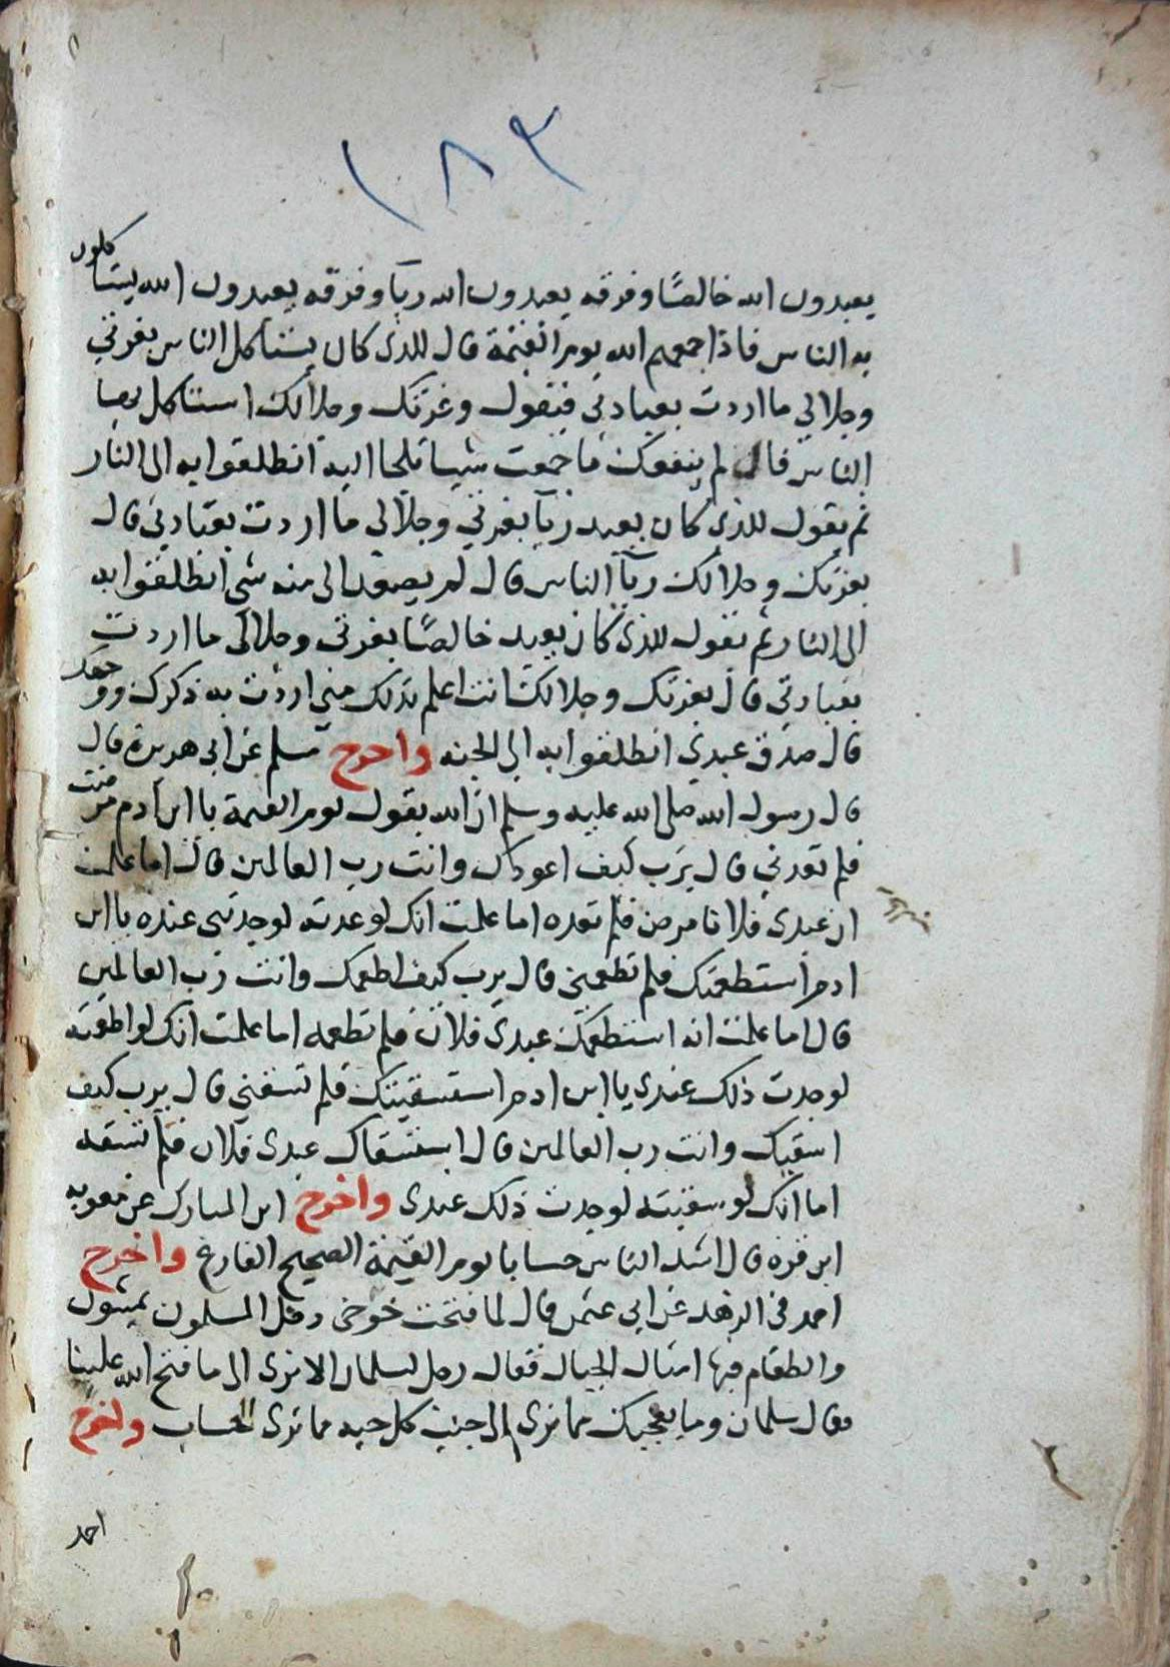 ١٨٣
يعبدون الله خالصًا وفرقه يعبدون الله ريآ وفرقه يعبدون الله يستاكلون
به الناس فاذا جمعهم الله يوم القيمة قال للذى كان يستاكل الناس بعزتي
وجلالي ما اردت بعبادتي فيقول وعزتك وجلالك استاكل بها
الناس قال لم ينفعك ما جمعت شيا تلجا اليه انطلقوا به الى النار
ثم يقول للذى كان يعبد ريآ بعزتي وجلالى ما اردت بعبادتي قال
بعزتك وجلالك ريآ الناس قال لم يصعد الى منه شى انطلقوا به
الى النار ثم يقول للذى كان يعبد خالصًا بعزتى وجلالى ما اردت
بعبادتي قال بعزتك وجلالك انت اعلم بذلك مني اردت به ذكرك ووجهك
قال صدق عبدي انطلقوا به الى الجنه واخرج مسلم عن ابى هريرة قال
قال رسول الله صلى الله عليه وسلم ان الله يقول يوم القيمة يا ابن ادم مرضت
فلم تعدني قال يرب كيف اعودك وانت رب العالمين قال اما علمت
ان عبدى فلانا مرض فلم تعده اما علمت انك لو عدته لوجدتنى عنده يا ابن
ادم استطعمتك فلم تطعمنى قال يرب كيف اطعمك وانت رب العالمين
قال اما علمت انه استطعمك عبدى فلان فلم تطعمه اما علمت انك لو اطعمته
لوجدت ذلك عندى يا ابن ادم استسقيتك فلم تسقني قال يرب كيف
اسقيك وانت رب العالمين قال استسقاك عبدى فلان فلم تسقه
اما انك لو سقيته لوجدت ذلك عندى واخرج ابن المبارك عن معويه
ابن قره قال اشد الناس حسابا يوم القيمة الصحيح الفارغ واخرج
احمد فى الزهد عن ابى عثمن قال لما فتحت خوخى دخل المسلمون يمشون
والطعام فيها امثال الجبال فقال رجل لسلمان الا ترى الى ما فتح الله علينا
فقال سلمان وما يعجبك مما ترى الى جنب كل حبه مما ترى الحساب واخرج
احمد